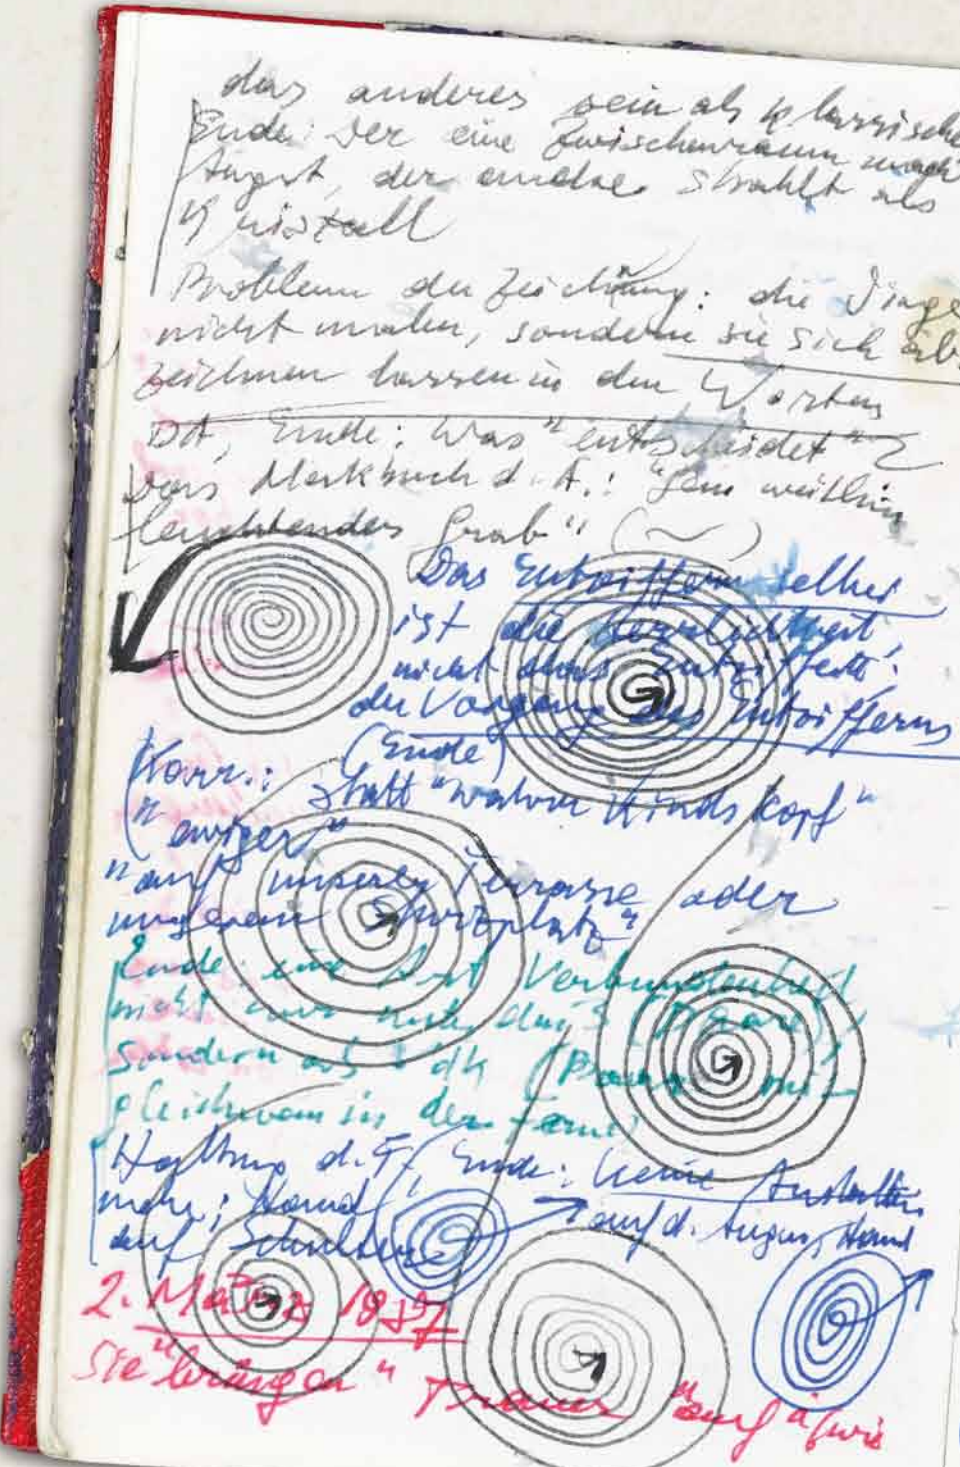 das anderes sein als klassische
Ende: Der eine Zwischenraum macht
Angst, der andere strahlt als
Kristall
Problem der Zeichnung: die Dinge
nicht malen, sondern sie sich ab-
zeichnen lassen in den Worten
DA, Ende: Was "entscheidet"?
Das Merkbuch d. A.: "Sein weithin
leuchtendes Grab" (~)
Das Entziffern selber
ist die Herrlichkeit,
nicht das Entzifferte:
der Vorgang des Entzifferns
(Ende)
Korr.: statt "wahrer Kindskopf"
"ewiger"
"auf unserer Terrasse oder
unserem Sitzplatz"
Ende: eine Art Verbundenheit
nicht nur
sondern als
gleichsam in der Ferne
Haltung d. F., Ende: keine
mehr; Hand auf d. Augen, Hand
auf Schulter
2. März 1987
Sie "bringen" Trauer "auf"